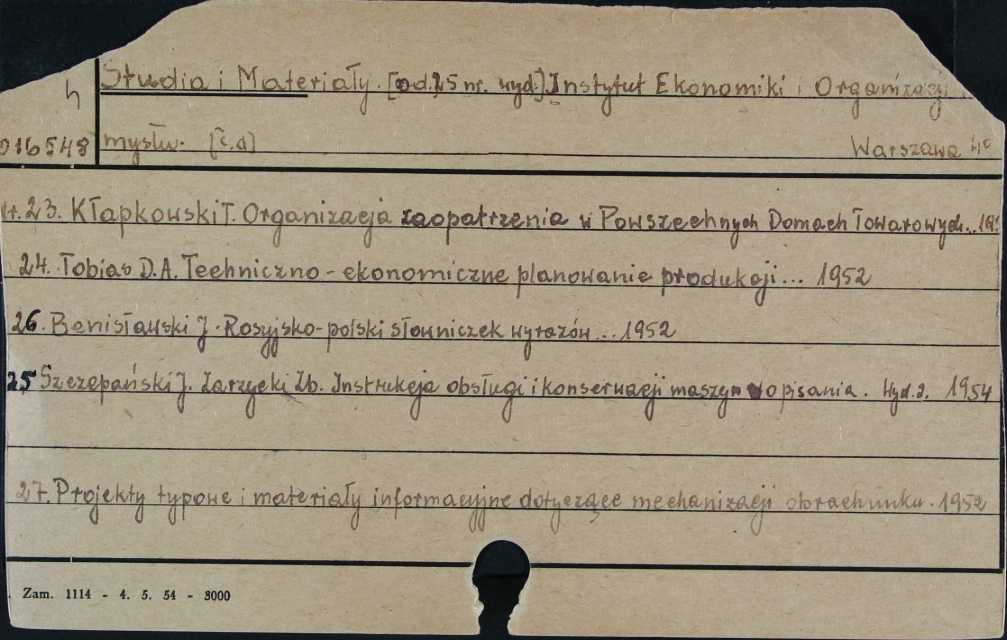 Studia i Materiały. [od 25 nr. wyd.] Instytut Ekonomiki i Organizacji
h
016548 mysłu. [č.d] Warszawa 4°
nr. 23. Kłapkowski T. Organizacja zaopatrzenia w Powszechnych Domach Towarowych...
24. Tobias D.A. Techniczno-ekonomiczne planowanie produkcji... 1952
26. Benisławski J. Rosyjsko-polski słowniczek wyrazów... 1952
25 Szczepański J. Zarzycki Zb. Instrukcja obsługi i konserwacji maszyn do pisania. Wyd. 2. 1954
27. Projekty typowe i materiały informacyjne dotyczące mechanizacji obrachunku. 1952
Zam. 1114 - 4. 5. 54 - 3000